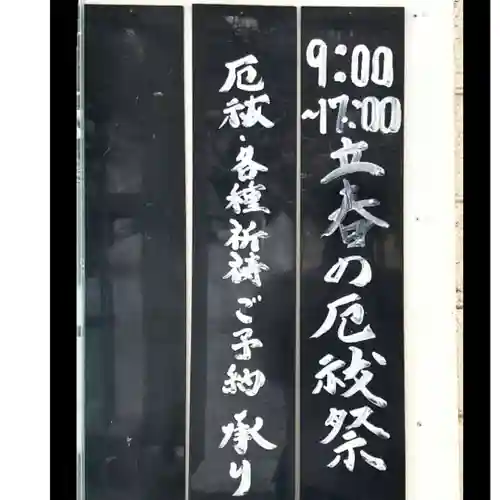 9:00
~17:00
立春の厄祓祭
厄祓・各種祈祷ご予納承り